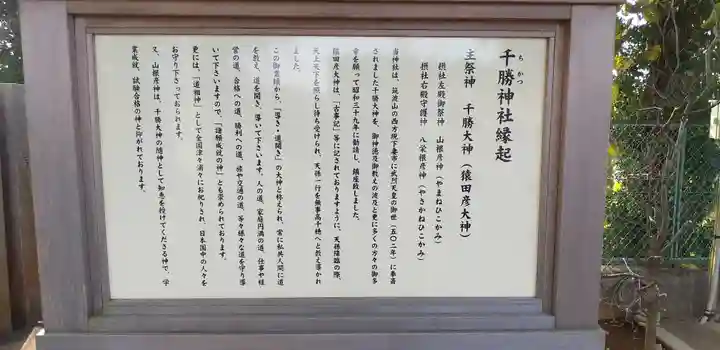 千勝神社縁起
ちかつ
主祭神 千勝大神(猿田彦大神)
摂社左殿御祭神 山根彦神(やまねひこかみ)
摂社右殿守護神 八栄根彦神(やさかねひこかみ)
当神社は、筑波山の西方現下妻市に武烈天皇の御世(五〇二年)に奉斎
されました千勝大神を、御神徳及御教えの波及と更に多くの方々の御多
幸を願って昭和三十九年に勧請し、鎮座致しました。
猿田彦大神は、「古事記」等に記されておりますように、天孫降臨の際、
天上天下を照らし待ち受けられ、天孫一行を無事高千穂へと教え導かれ
ました。
この御業績から、「導き・道開き」の大神と称えられ、常に私共人間に道
を教え、道を開き、導いて下さいます。人の道、家庭円満の道、仕事や経
営の道、合格への道、勝利への道、旅や交通の道、等々様々な道を守り導
いて下さいますので、「諸願成就の神」とも崇められております。
更には、「道祖神」として全国津々浦々にお祀りされ、日本国中の人々を
お守り下さっておられます。
又、山根彦神は、千勝大神の随神として知恵を授けてくださる神で、学
業成就、試験合格の神と仰がれております。